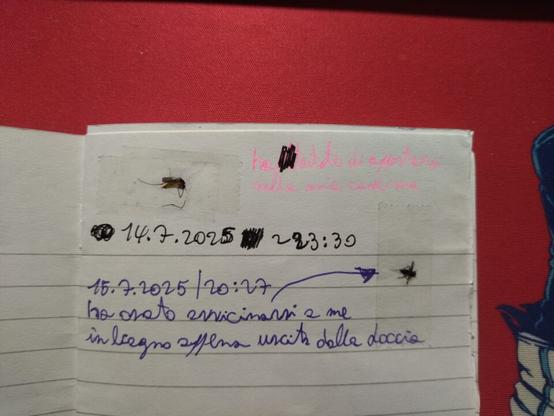 ha tentato di appostarsi
nella mia camera
14.7.2025 ~23:30
15.7.2025 | 20:27
ha osato avvicinarsi a me
in bagno appena uscita dalla doccia